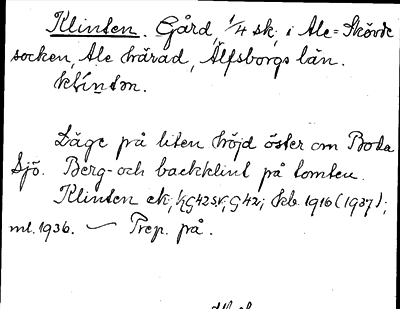 Klinten. Gård, 1/4 sk, i Ale-Skövde
socken, Ale härad, Älfsborgs län.
klíntən.
Läge på liten höjd öster om Boda
Sjö. Berg- och backklint på tomten.
Klinten ek; hG42sv; G42; kb. 1916 (1937);
ml. 1936. — Prep. på.